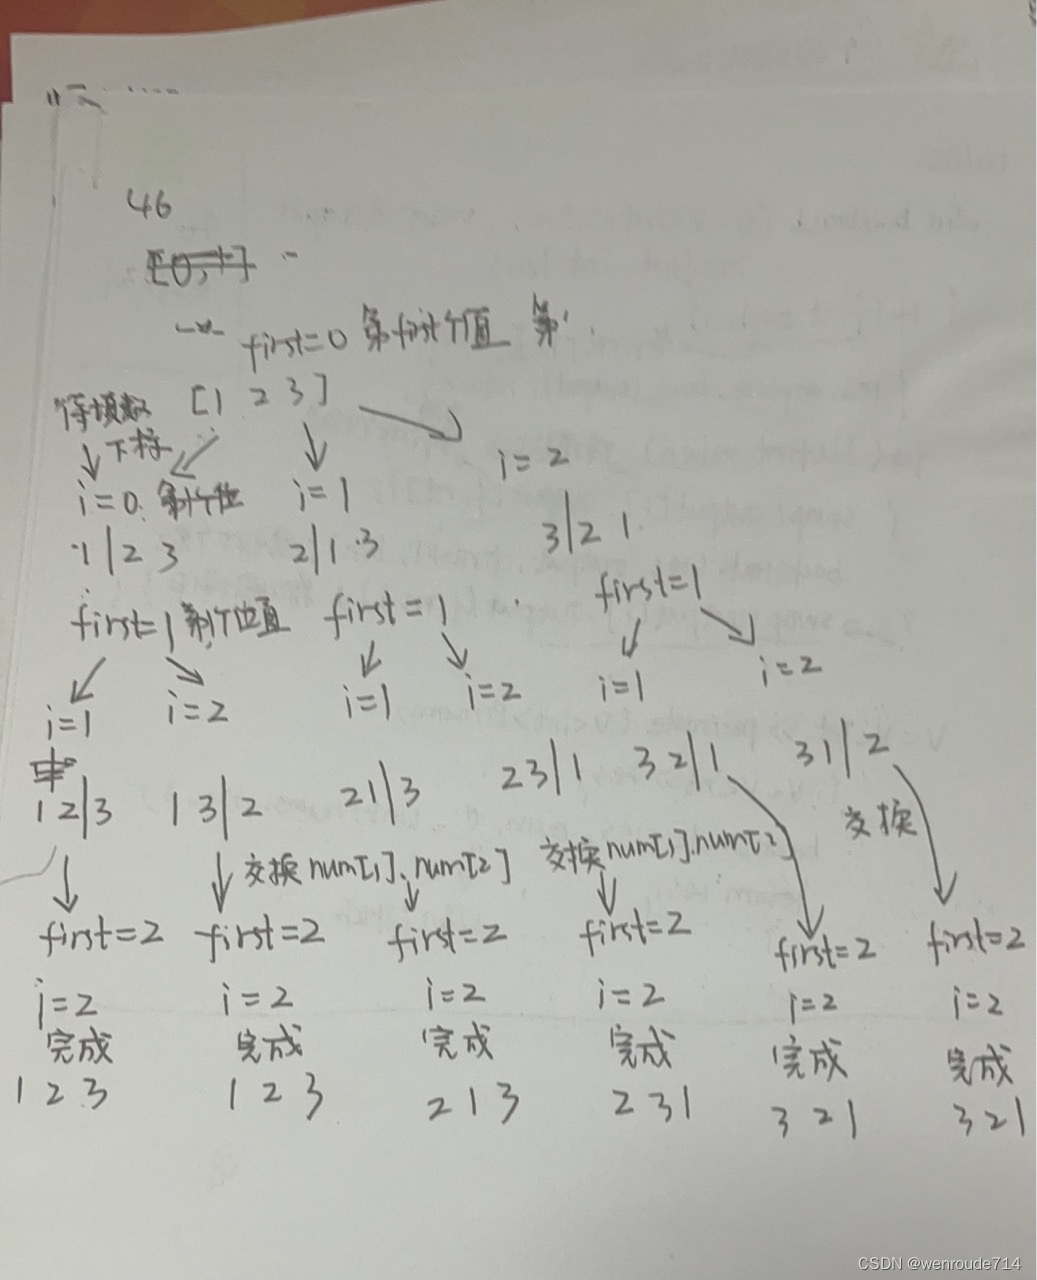 46
first=0 第first个值 第
待填数 [1 2 3]
下标
i=2
i=0 第1个位 i=1
3|2 1
1|2 3 2|1 3
first=1
first=1 第1个位置 first=1
i=1 i=2 i=1 i=2 i=1 i=2
12|3 13|2 21|3 23|1 32|1 31|2
交换num[1].num[2] 交换num[1].num[2] 交换
first=2 first=2 first=2 first=2 first=2 first=2
i=2 i=2 i=2 i=2 i=2 i=2
完成 完成 完成 完成 完成 完成
1 2 3 1 2 3 2 1 3 2 3 1 3 2 1 3 2 1
CSDN @wenroude714